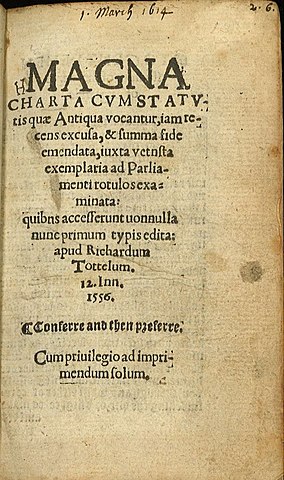 1. March 1614
2. 6.
MAGNA
CHARTA CVM STATV-
tis quæ Antiqua vocantur, iam re-
cens excusa, & summa fide
emendata, iuxta vetusta
exemplaria ad Parlia-
menti rotulos exa-
minata:
quibus accesserunt nonnulla
nunc primum typis edita:
apud Richardum
Tottelum.
12. Iun.
1556.
¶Conferre and then preferre.
Cum priuilegio ad impri-
mendum solum.